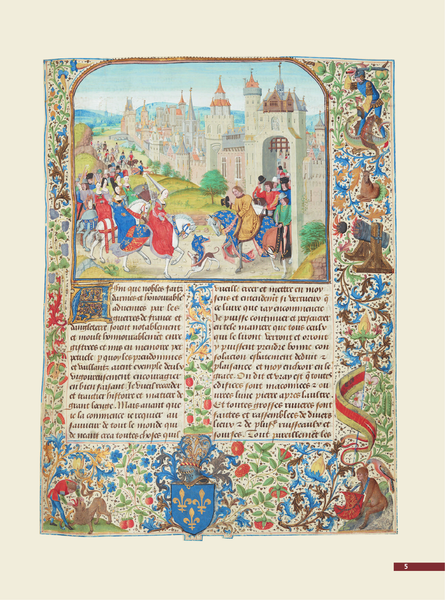 Afin que nobles faitz
darmes et honourable
aduenues par les
guerres de france et
dangleterre soient notablement
et moult honnourablement enre
gistrees et mis en memoire per
petuele p quoy les preudommes
et vaillans aient exemple deulx
vigoureusement encouragier
en bien faisant. Je vueil recorder
et traictier histoire et matiere de
grant louenge. Mais auant que
ie la commence ie requier au
sauueur de tout le monde qui
de neant crea toutes choses quil
vueille creer et mettre en moy
sens et entendemt si vertueux q
ce liure que iay encommencie
Je puisse continuer et perseuerer
en tele maniere que tous ceulx
qui le liront verront et orront
y puissent prendre bonne con
solacion esbatement deduit
plaisance et moy encheoir en le
grace. On dit et vray est q toutes
edifices sont maconnez
ures lune pierre apres lautre
Et toutes grosses riuieres sont
faittes et rassemblees de diuers
lieux z de pluss russeaulx et
sourses. Tout pareillement les
5